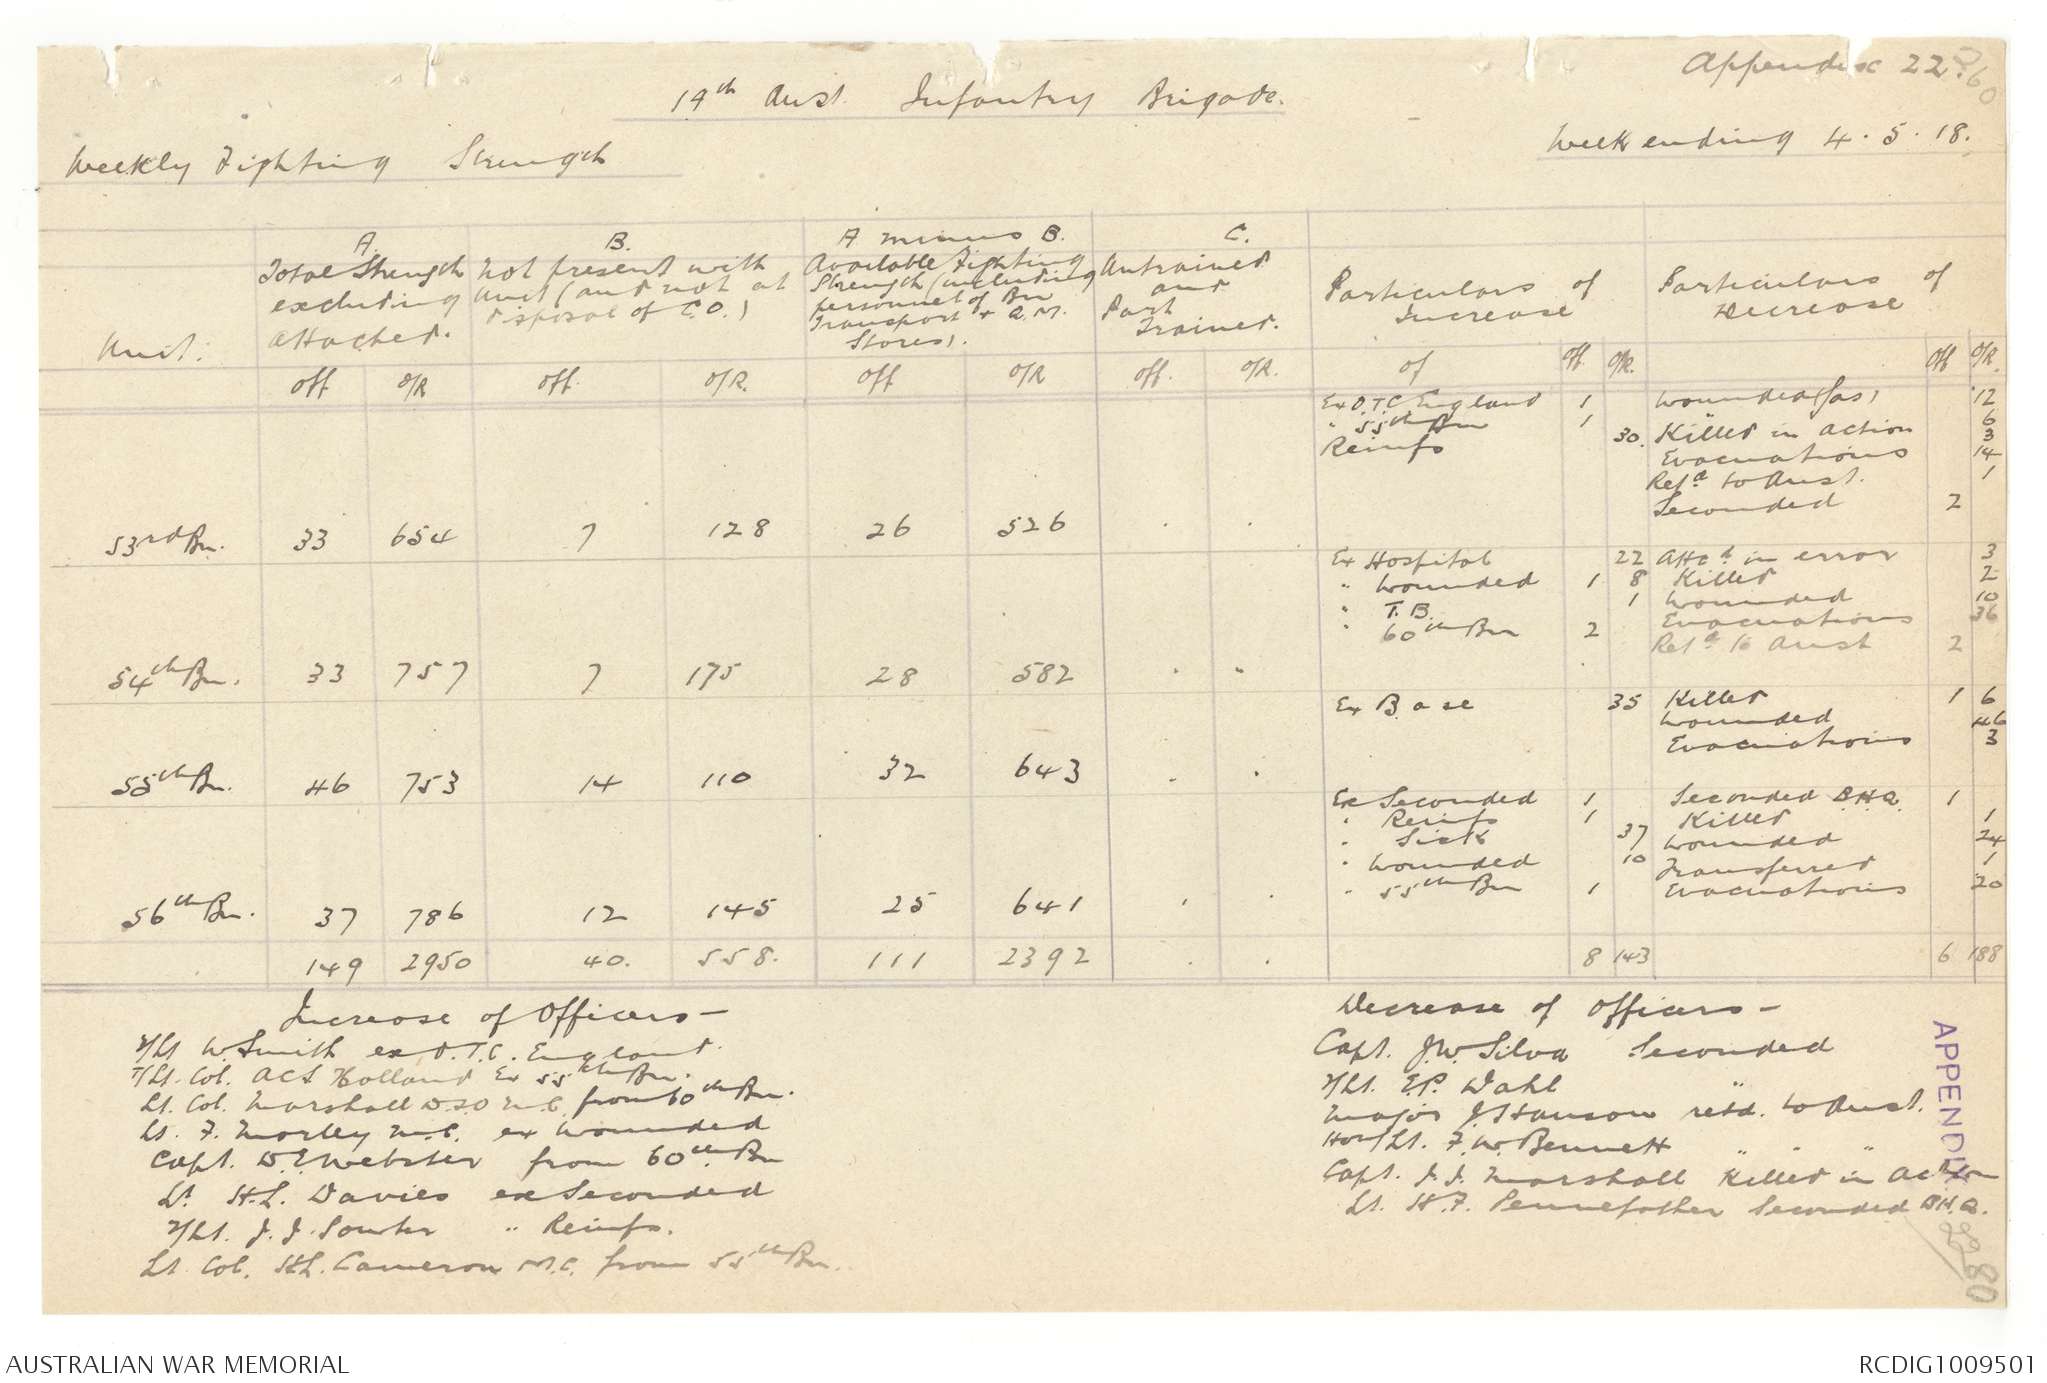 Appendix 22.
14th Aust. Infantry Brigade.
Weekly Fighting Strength
Week ending 4.5.18.
A. B. A minus B. C.
Unit. Total Strength excluding attached. Not present with Unit (and not at disposal of C.O.) Available Fighting Strength (including personnel of Bn Transport & Q.M. Stores). Untrained and Part Trained. Particulars of Increase Particulars of Decrease
off O/R off. O/R. off O/R off. O/R. of off O/R. off O/R.
Ex O.T.C. England 1 Wounded (Gas) 12
" 55th Bn 1 " 6
Reinfs 30. Killed in action 3
Evacuations 14
Retd to Aust. 1
Seconded 2
53rd Bn. 33 654 7 128 26 526 . .
Ex Hospital 22 Attcd in error 3
" Wounded 1 8 Killed 2
" T.B. 1 Wounded 10
" 60th Bn 2 Evacuations 36
Retd to Aust 2
54th Bn. 33 757 7 175 28 582 . .
Ex Base 35 Killed 1 6
Wounded 46
Evacuations 3
55th Bn. 46 753 14 110 32 643 . .
Ex Seconded 1 Seconded B.H.Q. 1
" Reinfs 1 Killed 1
" Sick 37 Wounded 24
" Wounded 10 Transferred 1
" 55th Bn 1 Evacuations 20
56th Bn. 37 786 12 145 25 641 . .
149 2950 40. 558. 111 2392 . . 8 143 6 188
Increase of Officers—
2/Lt W. Smith ex O.T.C. England.
T/Lt. Col. ACS Holland Ex 55th Bn.
Lt. Col. Marshall D.S.O M.C. from 60th Bn.
Lt. F. Morley M.C. ex Wounded
Capt. D.E. Webster from 60th Bn
Lt. H.L. Davies ex Seconded
2/Lt. J.J. Sowter " Reinfs.
Lt Col. H.L. Cameron M.C. from 55th Bn.
Decrease of Officers—
Capt. J.W. Silva Seconded
2/Lt. E.P. Dahl "
Major J. Hanson retd. to Aust.
Hon/Lt. F.W. Bennett " " "
Capt. J.J. Marshall Killed in Action
Lt. H.F. Pennefather Seconded B.H.Q.
APPENDIX
AUSTRALIAN WAR MEMORIAL
RCDIG1009501